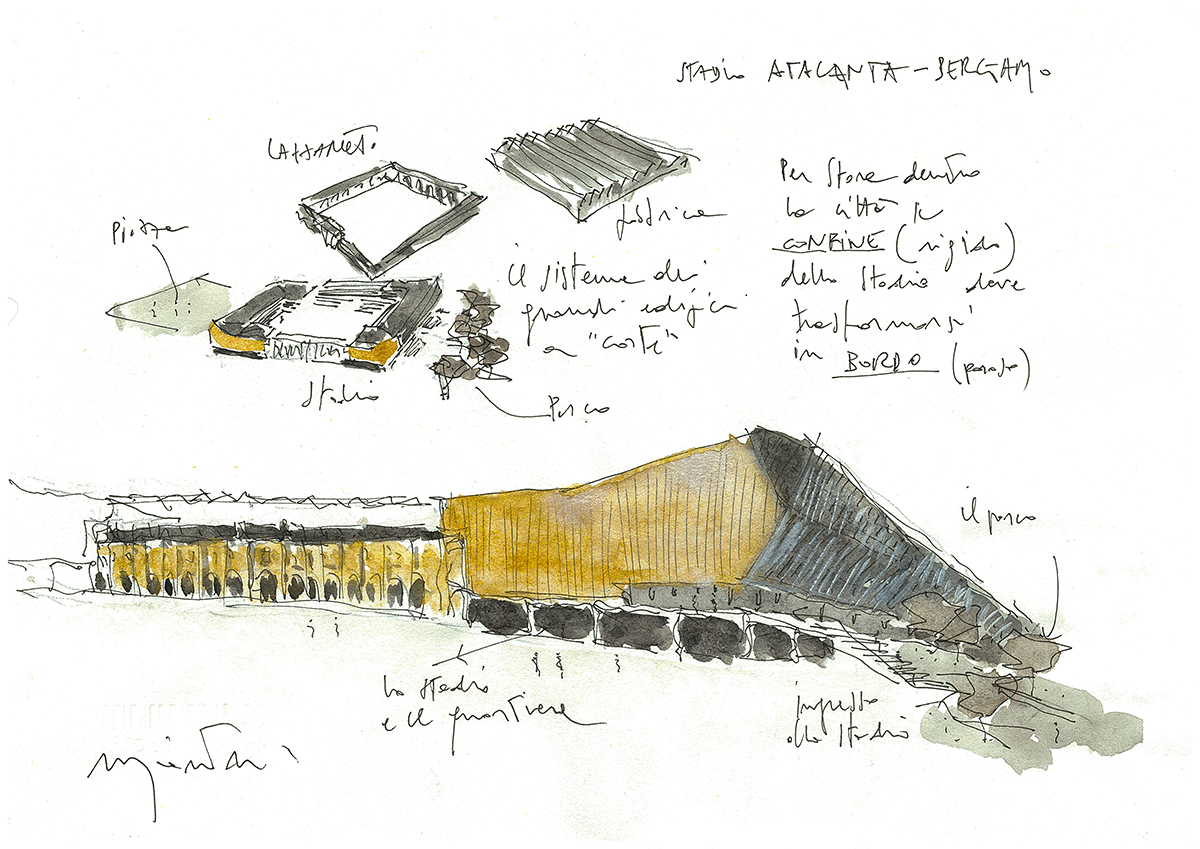 STADIO ATALANTA - BERGAMO
LAZZARETTO
Piazza
fabbrica
Per stare dentro
la città il
CONFINE (rigido)
dello stadio deve
trasformarsi
in BORDO (poroso)
il sistema dei
grandi edifici
a "corte"
Stadio
Parco
il parco
lo stadio
e il quartiere
ingresso
allo stadio